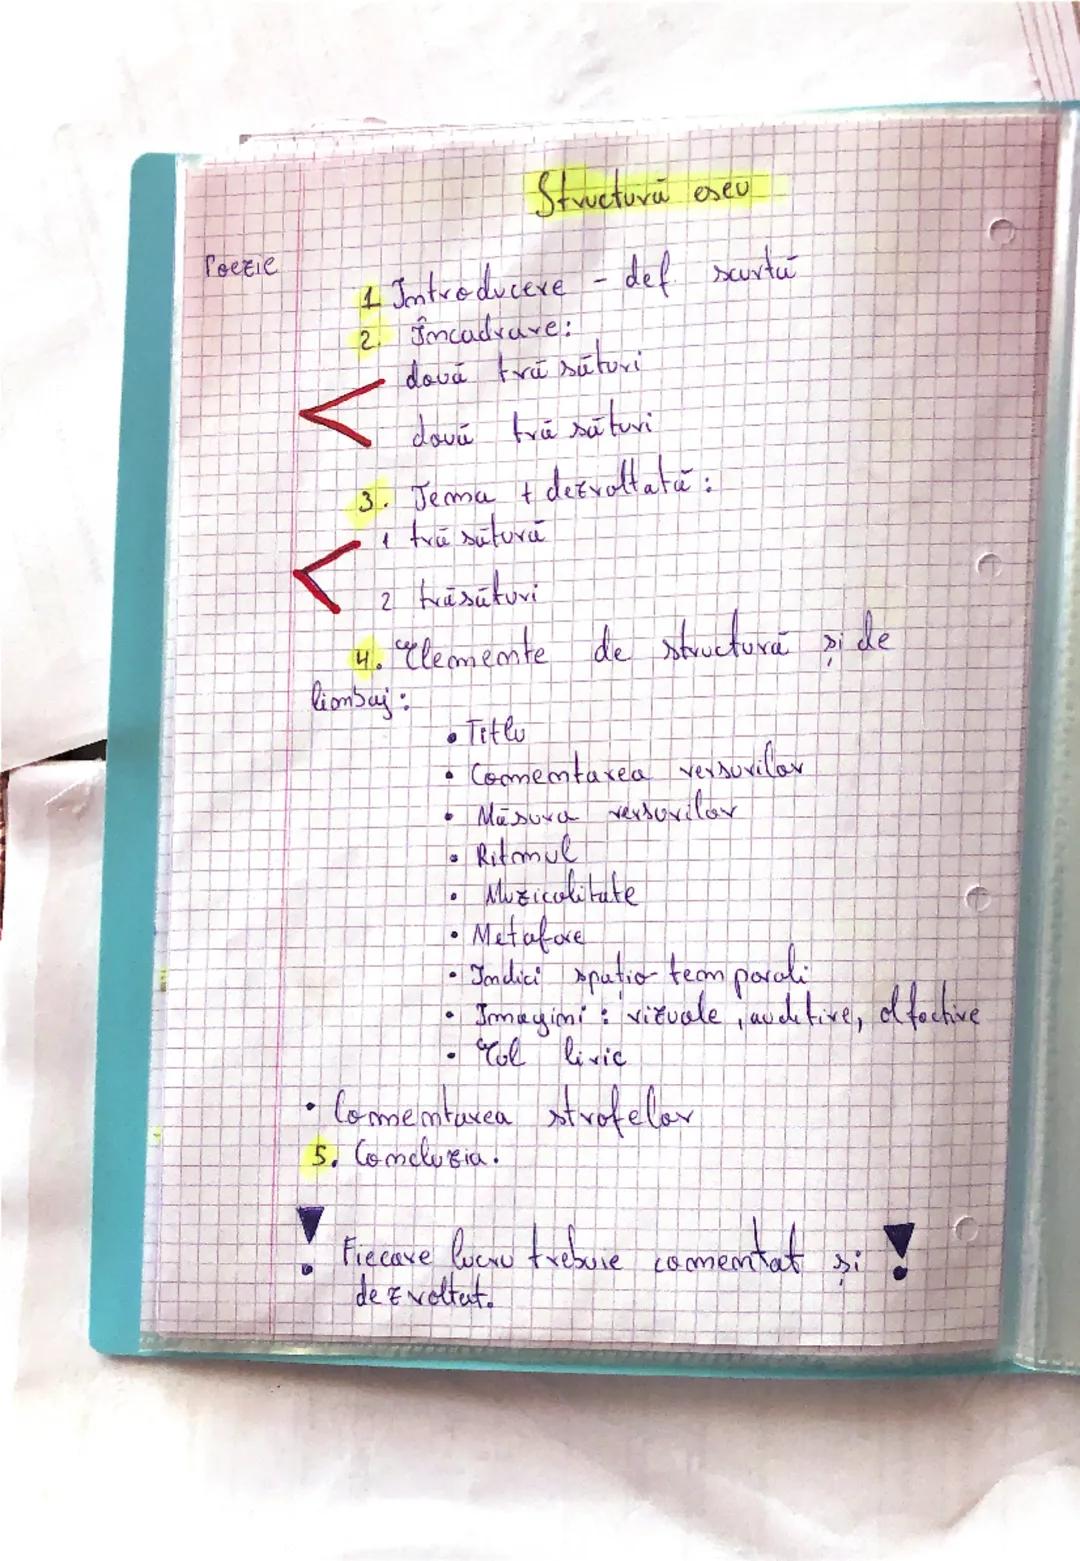 Structură eseu
Poezie
1 Introducere - def. scurtă
2. Încadrare:
două trăsături
două trăsături
3. Tema + dezvoltată:
1 trăsătură
2 trăsături
4. Elemente de structură și de
limbaj:
• Titlu
• Comentarea versurilor
• Măsura versurilor
• Ritmul
• Muzicalitate
• Metafore
• Indici spațio-temporali
• Imagini: vizuale, auditive, olfactive
• Eul liric
• Comentarea strofelor
5. Concluzia.
! Fiecare lucru trebuie comentat și !
dezvoltat.